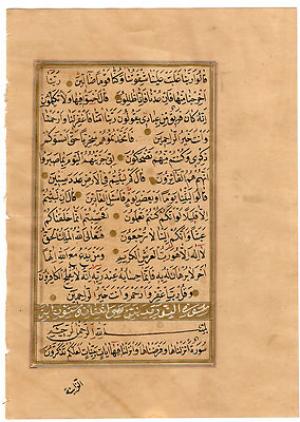 قَالُوا رَبَّنَا غَلَبَتْ عَلَيْنَا شِقْوَتُنَا وَكُنَّا قَوْمًا ضَالِّينَ رَبَّنَا
اَخْرِجْنَا مِنْهَا فَاِنْ عُدْنَا فَاِنَّا ظَالِمُونَ قَالَ اخْسَؤُا فِيهَا وَلَا تُكَلِّمُونِ
اِنَّهُ كَانَ فَرِيقٌ مِنْ عِبَادِي يَقُولُونَ رَبَّنَا اٰمَنَّا فَاغْفِرْ لَنَا وَارْحَمْنَا
وَاَنْتَ خَيْرُ الرَّاحِمِينَ فَاتَّخَذْتُمُوهُمْ سِخْرِيًّا حَتّٰى اَنْسَوْكُمْ
ذِكْرِي وَكُنْتُمْ مِنْهُمْ تَضْحَكُونَ اِنِّي جَزَيْتُهُمُ الْيَوْمَ بِمَا صَبَرُوا
اَنَّهُمْ هُمُ الْفَائِزُونَ قَالَ كَمْ لَبِثْتُمْ فِي الْاَرْضِ عَدَدَ سِنِينَ
قَالُوا لَبِثْنَا يَوْمًا اَوْ بَعْضَ يَوْمٍ فَاسْئَلِ الْعَادِّينَ قَالَ اِنْ لَبِثْتُمْ
اِلَّا قَلِيلًا لَوْ اَنَّكُمْ كُنْتُمْ تَعْلَمُونَ اَفَحَسِبْتُمْ اَنَّمَا خَلَقْنَاكُمْ
عَبَثًا وَاَنَّكُمْ اِلَيْنَا لَا تُرْجَعُونَ فَتَعَالَى اللّٰهُ الْمَلِكُ الْحَقُّ
لَا اِلٰهَ اِلَّا هُوَ رَبُّ الْعَرْشِ الْكَرِيمِ وَمَنْ يَدْعُ مَعَ اللّٰهِ اِلٰهًا
اٰخَرَ لَا بُرْهَانَ لَهُ بِهِ فَاِنَّمَا حِسَابُهُ عِنْدَ رَبِّهِ اِنَّهُ لَا يُفْلِحُ الْكَافِرُونَ
وَقُلْ رَبِّ اغْفِرْ وَارْحَمْ وَاَنْتَ خَيْرُ الرَّاحِمِينَ
سورة النور مدنية وهي
بِسْمِ اللّٰهِ الرَّحْمٰنِ الرَّحِيمِ
سُورَةٌ اَنْزَلْنَاهَا وَفَرَضْنَاهَا وَاَنْزَلْنَا فِيهَا اٰيَاتٍ بَيِّنَاتٍ لَعَلَّكُمْ تَذَكَّرُونَ
الزانية